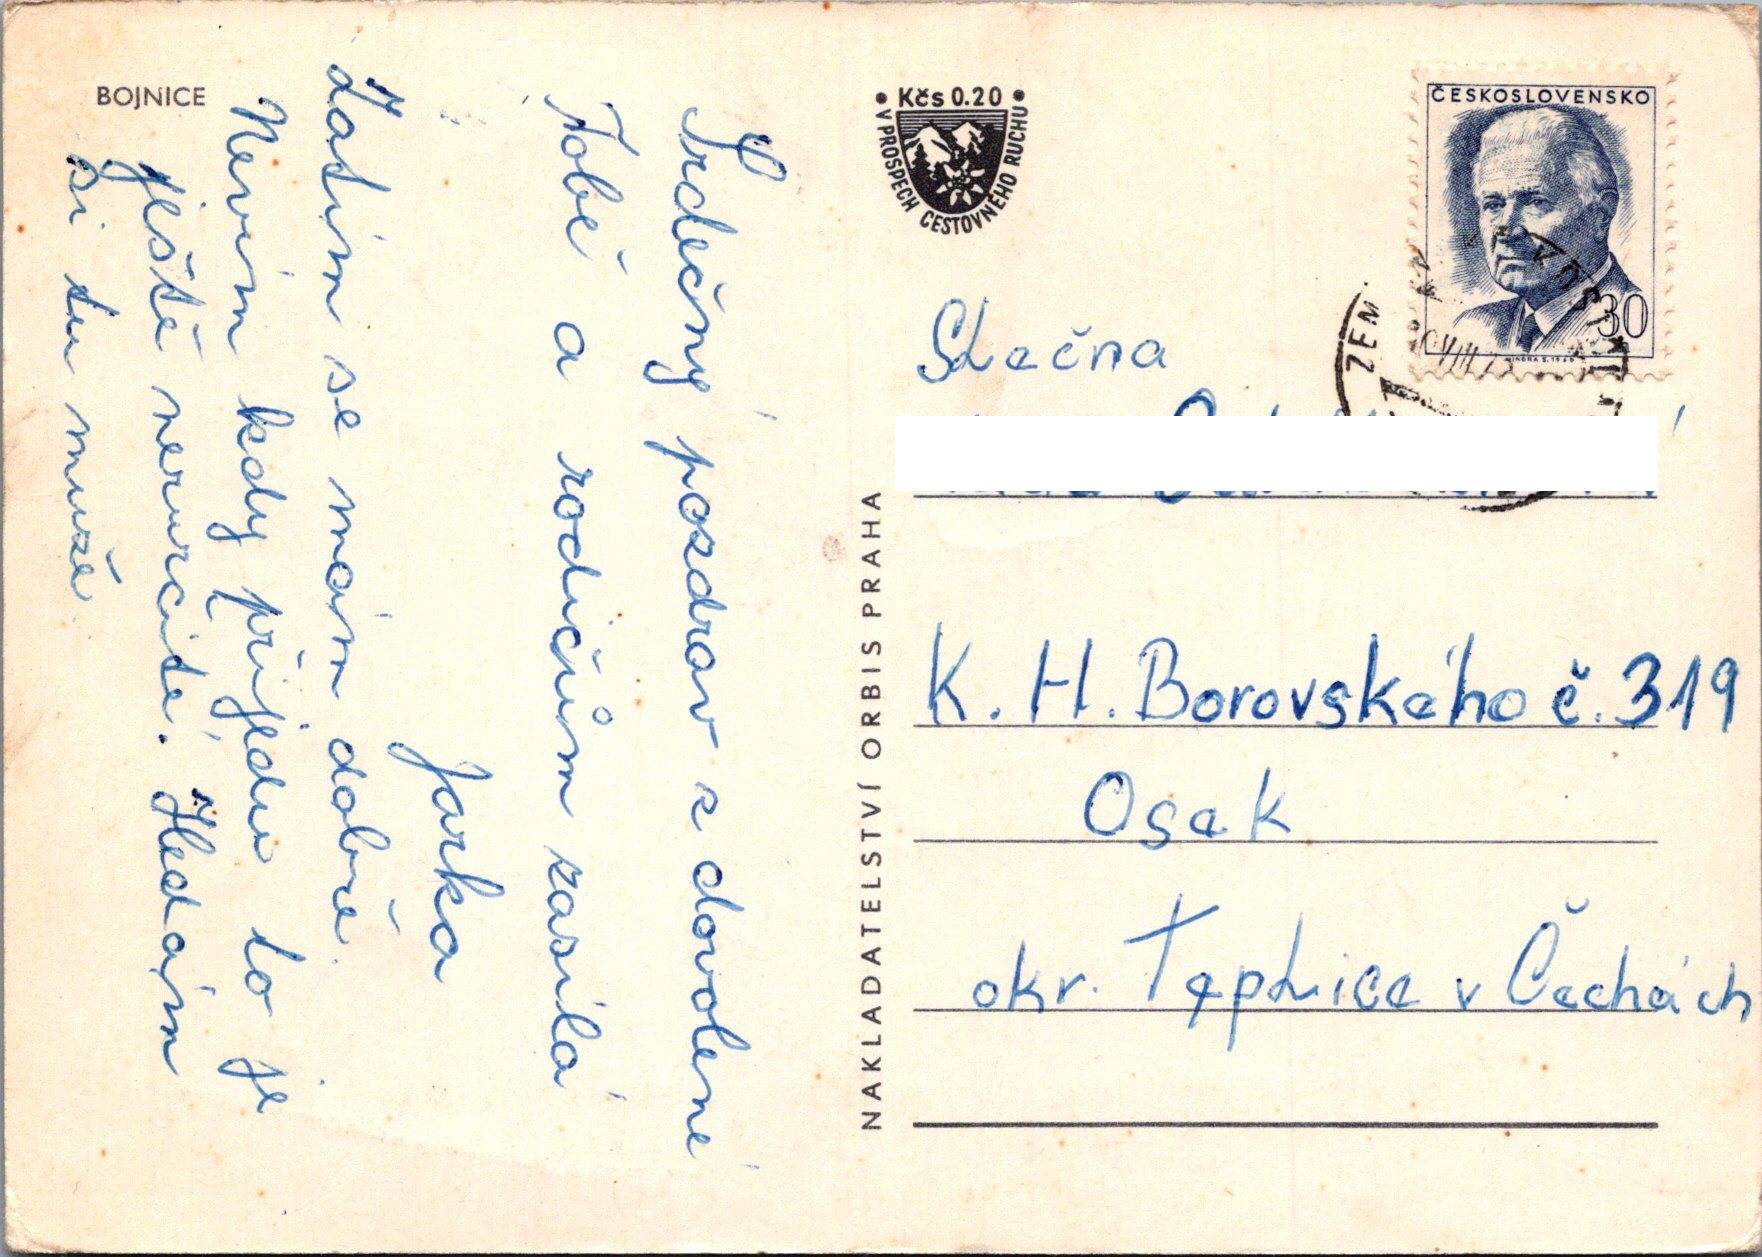 BOJNICE
Srdečný pozdrav z dovolené
Tobě a rodičům zasílá
Jarka
Zatím se mám dobře.
Nevím kdy přijedu to je
ještě neurčité. Hledám
si tu muže
NAKLADATELSTVÍ ORBIS PRAHA
Kčs 0.20
V PROSPECH CESTOVNÉHO RUCHU
ČESKOSLOVENSKO
30
ZEM.
Slečna
K. H. Borovského č. 319
Osek
okr. Teplice v Čechách